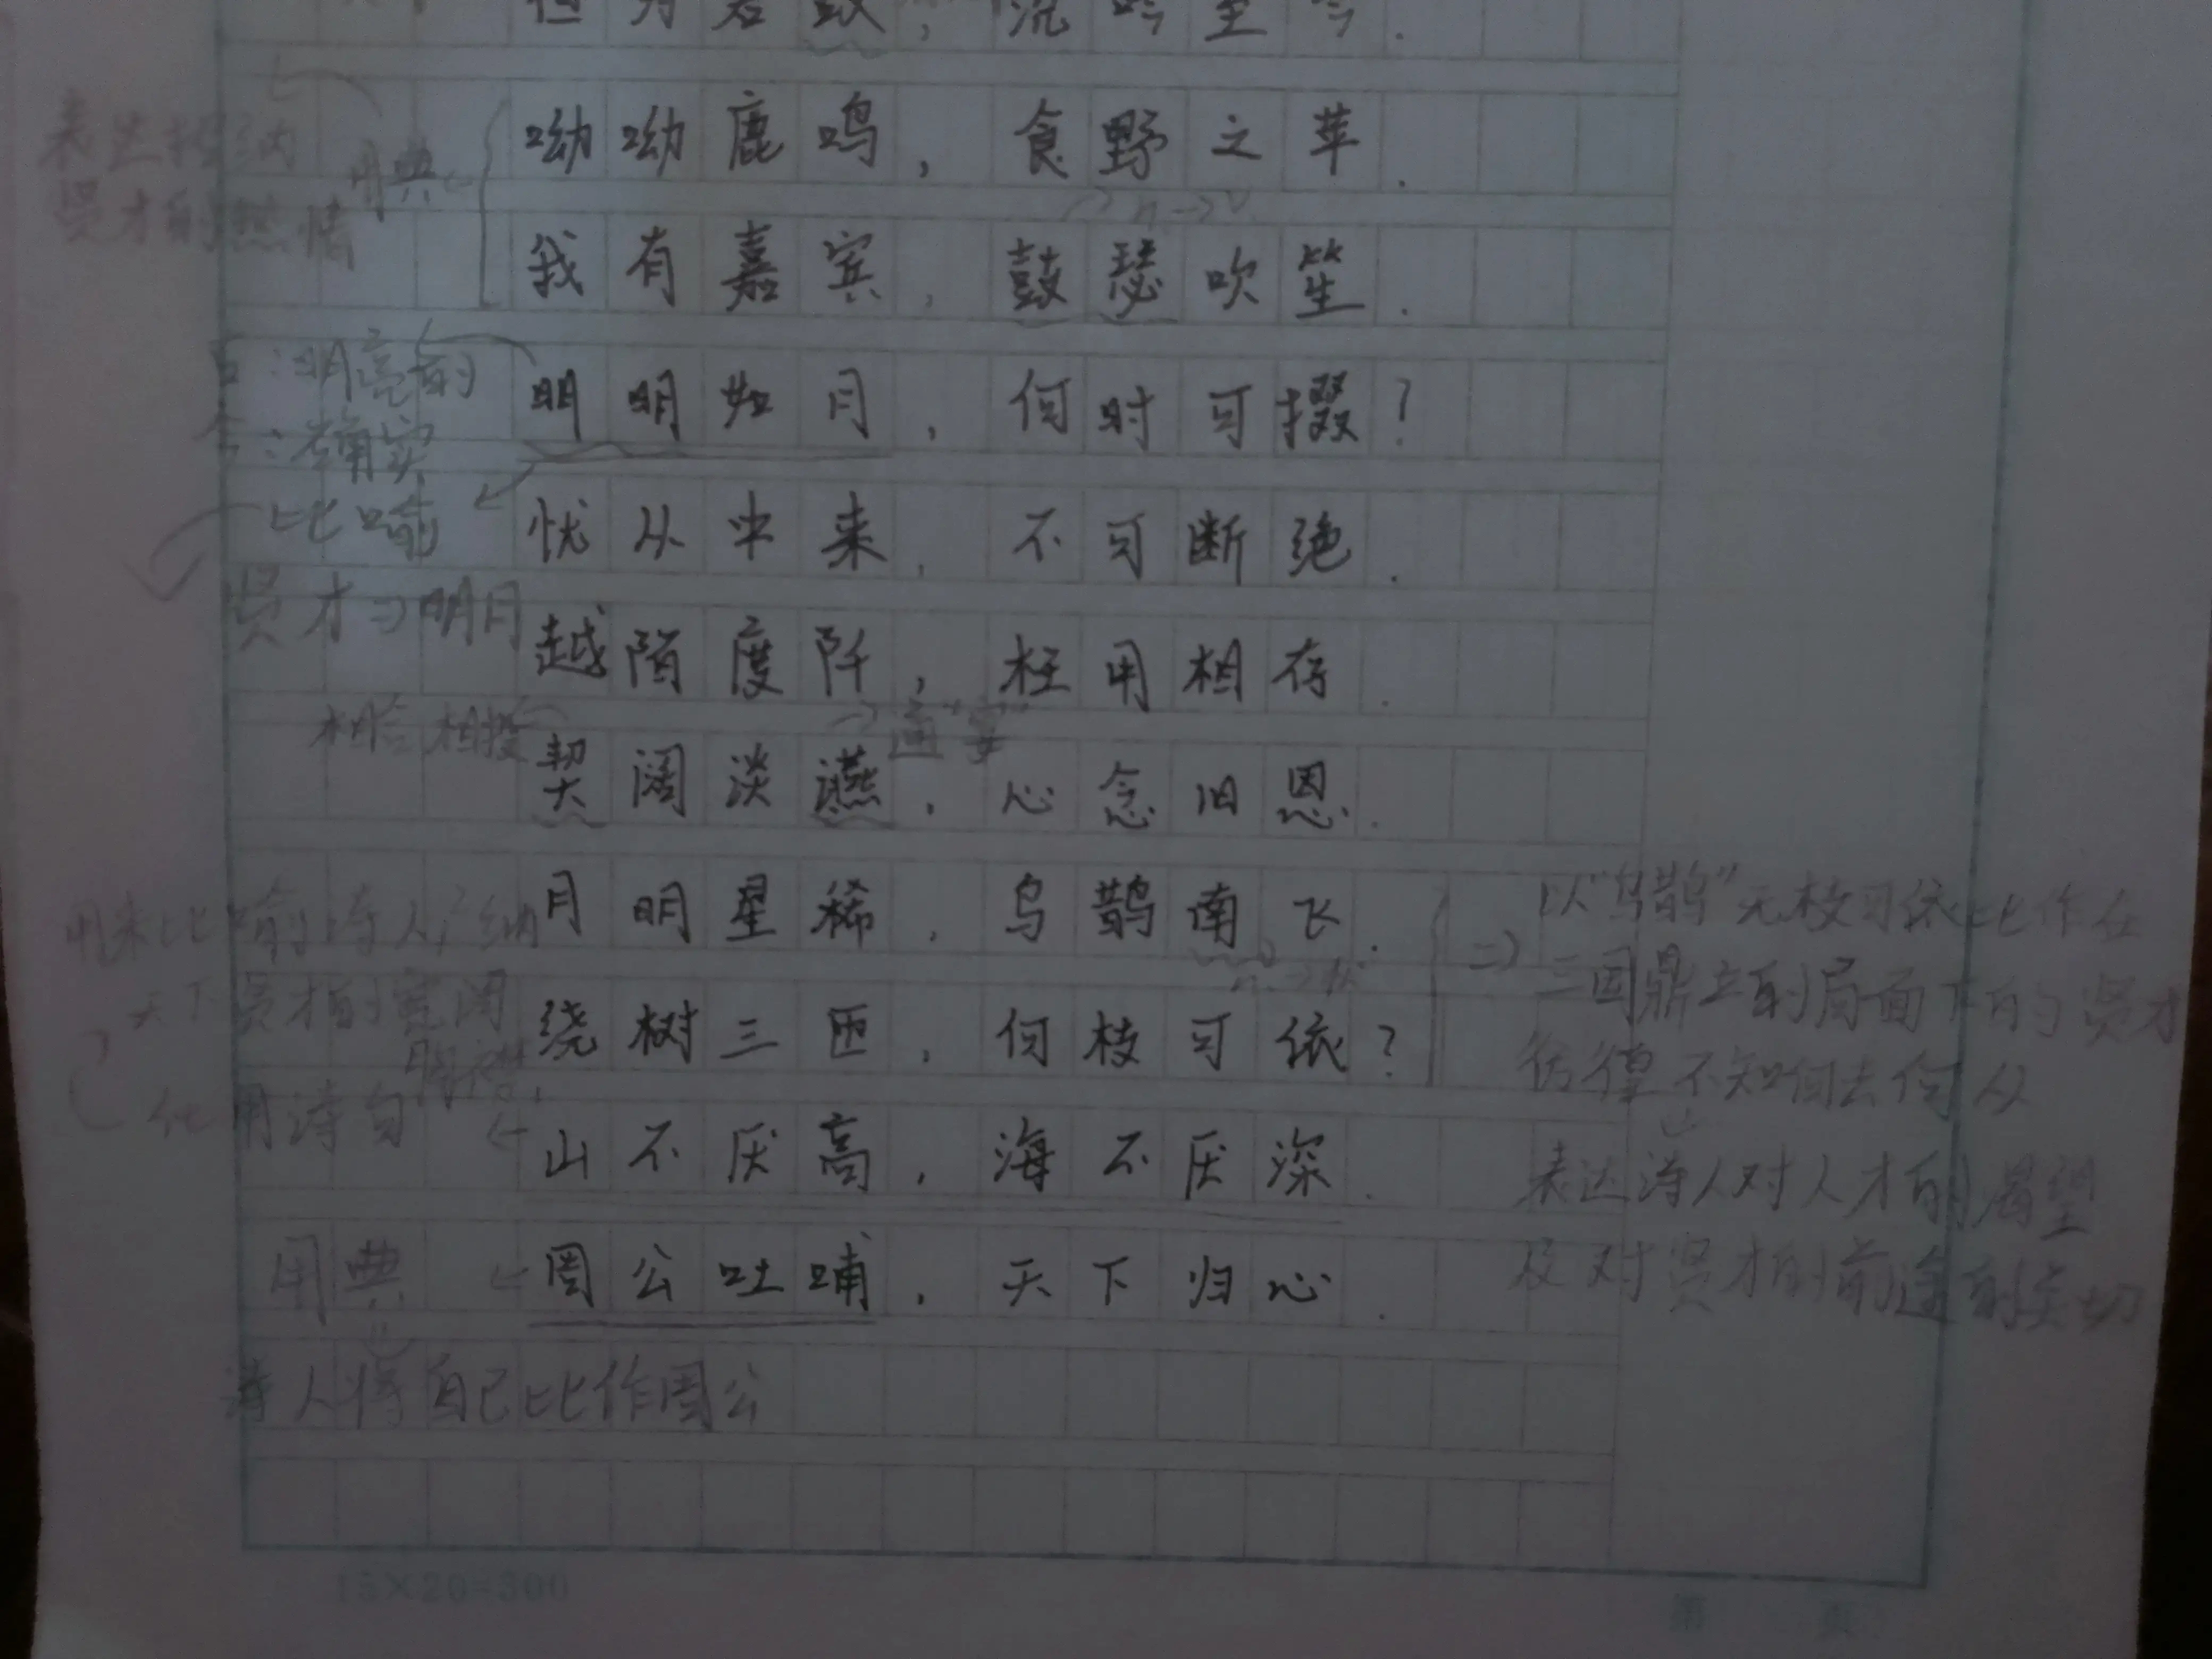 但为君故，沉吟至今．
呦呦鹿鸣，食野之苹．
表达招纳
贤才的热情
用典
n→v
我有嘉宾，鼓瑟吹笙．
古：明亮的
今：确实
明明如月，何时可掇？
比喻
忧从中来，不可断绝．
贤才⇒明月
越陌度阡，枉用相存．
通"宴"
契阔谈䜩，心念旧恩．
月明星稀，乌鹊南飞．
用来比喻诗人纳
天下贤才的宽阔
胸襟．
绕树三匝，何枝可依？
⇒以"乌鹊"无枝可依比作在
三国鼎立的局面下的贤才
彷徨不知何去何从
表达诗人对人才的渴望
及对贤才的前途的关切
化用诗句
山不厌高，海不厌深．
用典
周公吐哺，天下归心．
诗人将自己比作周公
15×20=300
第 页